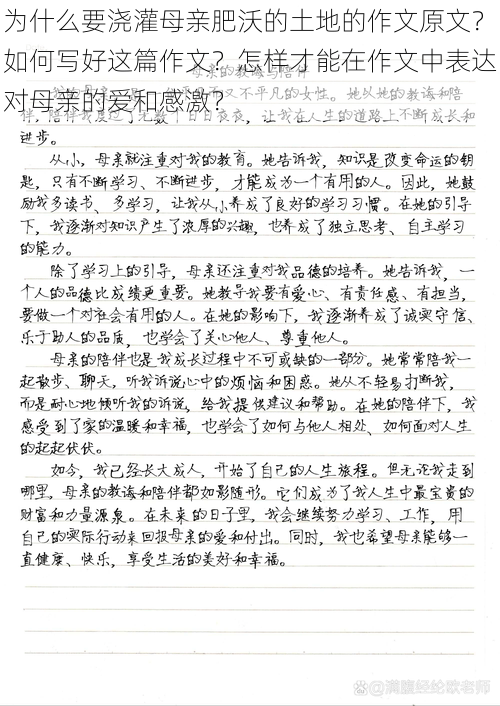 为什么要浇灌母亲肥沃的土地的作文原文?
如何写好这篇作文?怎样才能在作文中表达
对母亲的爱和感激?
母亲的教诲与陪伴
不平凡的女性。她以她的教诲和陪
伴,陪伴我度过了无数个日日夜夜,让我在人生的道路上不断成长和
进步。
从小,母亲就注重对我的教育。她告诉我,知识是改变命运的钥
匙,只有不断学习、不断进步,才能成为一个有用的人。因此,她鼓
励我多读书、多学习,让我从小养成了良好的学习习惯。在她的引导
下,我逐渐对知识产生了浓厚的兴趣,也养成了独立思考、自主学习
的能力。
除了学习上的引导,母亲还注重对我品德的培养。她告诉我,一
个人的品德比成绩更重要。她教导我要有爱心、有责任感、有担当,
要做一个对社会有用的人。在她的影响下,我逐渐养成了诚实守信、
乐于助人的品质,也学会了关心他人、尊重他人。
母亲的陪伴也是我成长过程中不可或缺的一部分。她常常陪我一
起散步、聊天,听我诉说心中的烦恼和困惑。她从不轻易打断我,
而是耐心地倾听我的诉说,给我提供建议和帮助。在她的陪伴下,我
感受到了家的温暖和幸福,也学会了如何与他人相处、如何面对人生
的起起伏伏。
如今,我已经长大成人,开始了自己的人生旅程。但无论我走到
哪里,母亲的教诲和陪伴都如影随形。它们成为了我人生中最宝贵的
财富和力量源泉。在未来的日子里,我会继续努力学习、工作,用
自己的实际行动来回报母亲的爱和付出。同时,我也希望母亲能够一
直健康、快乐,享受生活的美好和幸福。
@满腹经纶欧老师